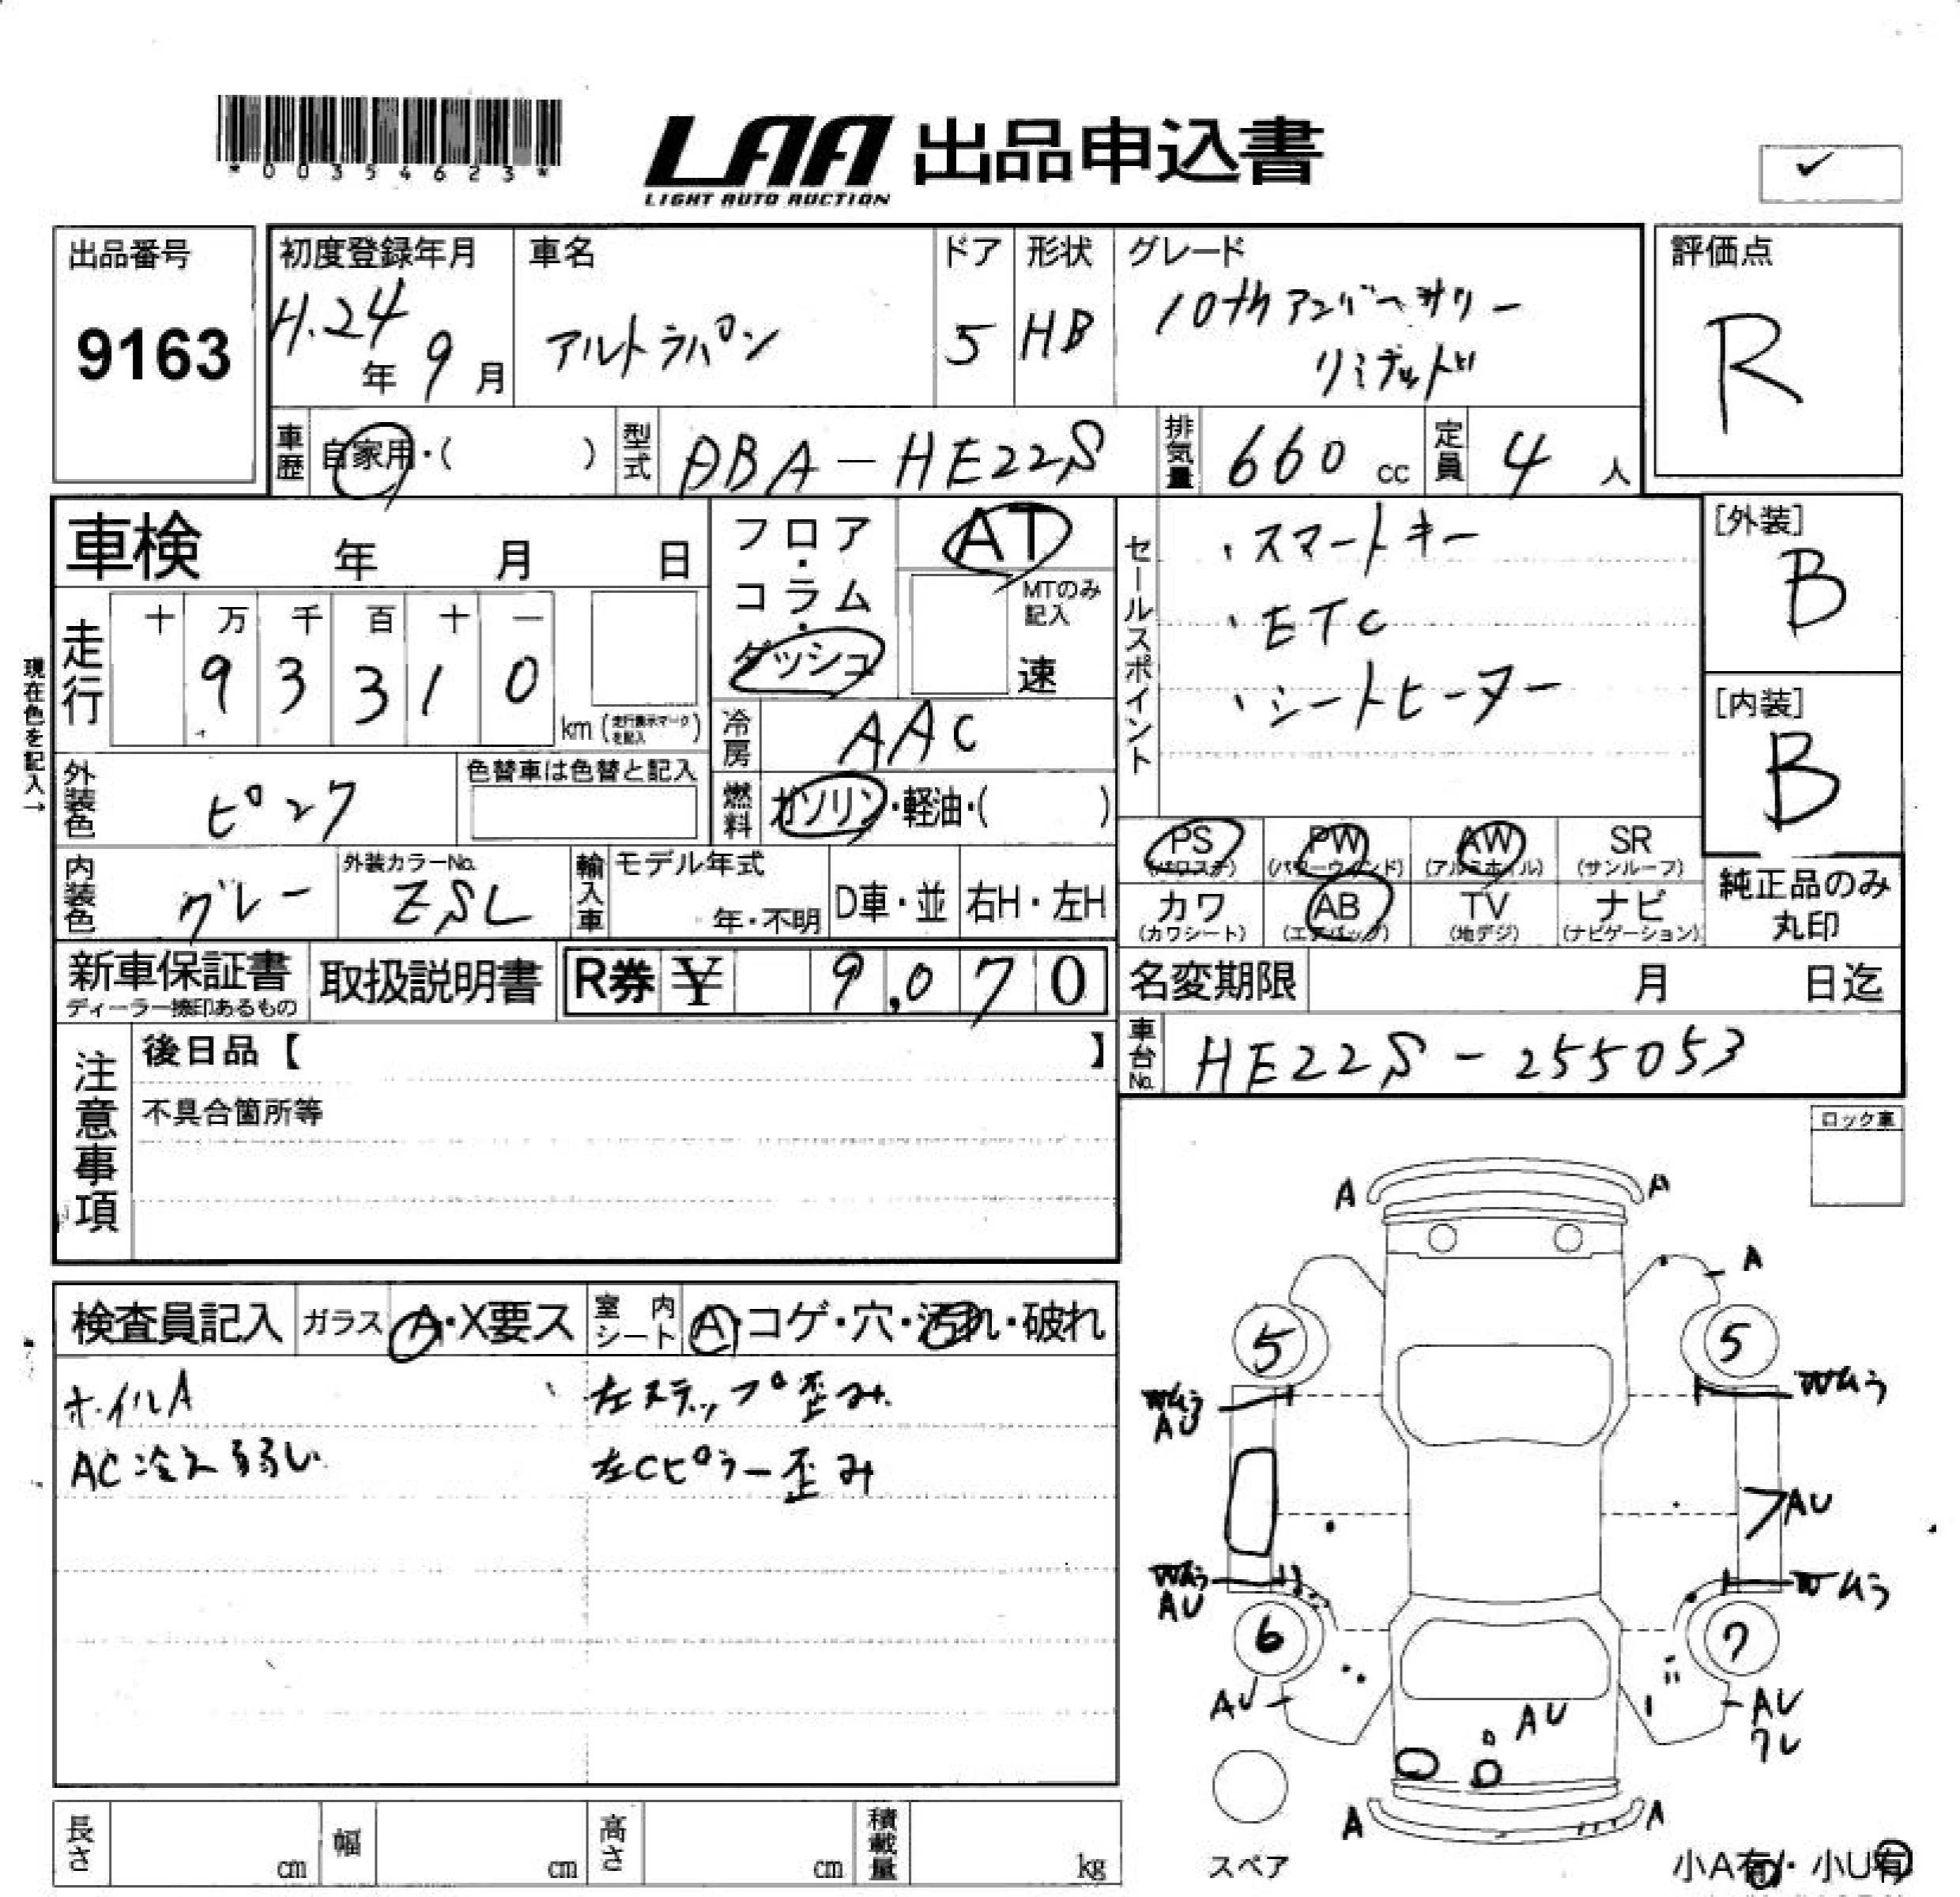 *00354623*
LAA 出品申込書
LIGHT AUTO AUCTION
✓
出品番号
9163
初度登録年月
H.24年 9月
車名
アルトラパン
ドア
5
形状
HB
グレード
10thアニバーサリー
リミテッド
評価点
R
車歴 自家用・( )
型式 DBA-HE22S
排気量 660 cc
定員 4 人
車検 年 月 日
フロア・コラム・ダッシュ
AT
MTのみ記入
速
セールスポイント
・スマートキー
・ETC
・シートヒーター
[外装]
B
[内装]
B
現在色を記入→
走行
十 万 千 百 十 一
9 3 3 1 0
km (走行表示マークを記入)
冷房 AAC
外装色 ピンク
色替車は色替と記入
燃料 ガソリン・軽油・( )
PS (パワステ)
PW (パワーウィンド)
AW (アルミホイル)
SR (サンルーフ)
内装色 グレー
外装カラーNo. ZSL
輸入車 モデル年式 年・不明
D車・並
右H・左H
カワ (カワシート)
AB (エアバッグ)
TV (地デジ)
ナビ (ナビゲーション)
純正品のみ
丸印
新車保証書
ディーラー捺印あるもの
取扱説明書
R券 ¥ 9,070
名変期限 月 日迄
車台No. HE22S-255053
注意事項
後日品【 】
不具合箇所等
ロック車
検査員記入
ガラス A・X要ス
室内シート A・コゲ・穴・汚れ・破れ
ホイルA
左ステップ歪み
AC冷え弱い
左Cピラー歪み
A A
A
5 5
Wムラ
AU
Wムラ
AU
Wムラ
AU
Wムラ
6 7
AU
AU
AU
クレ
A A
スペア
小A有・小U有
長さ cm
幅 cm
高さ cm
積載量 kg